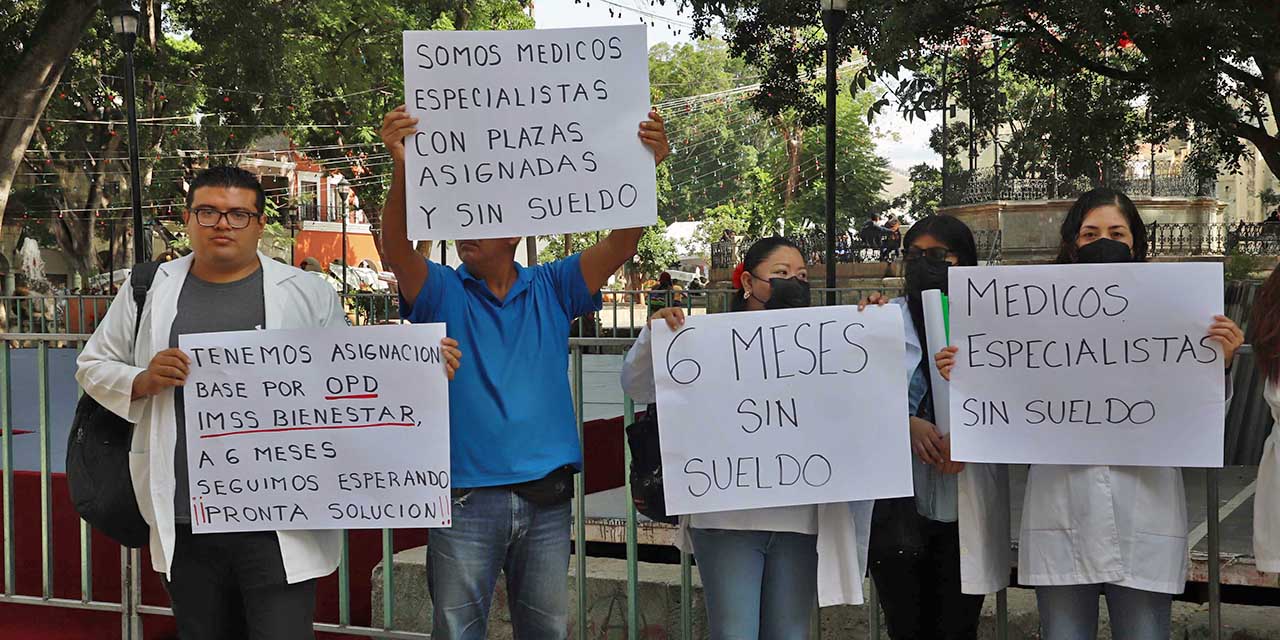 SOMOS MEDICOS
ESPECIALISTAS
CON PLAZAS
ASIGNADAS
Y SIN SUELDO
TENEMOS ASIGNACION
BASE POR OPD
IMSS BIENESTAR,
A 6 MESES
SEGUIMOS ESPERANDO
¡¡PRONTA SOLUCION!!
6 MESES
SIN
SUELDO
MEDICOS
ESPECIALISTAS
SIN SUELDO